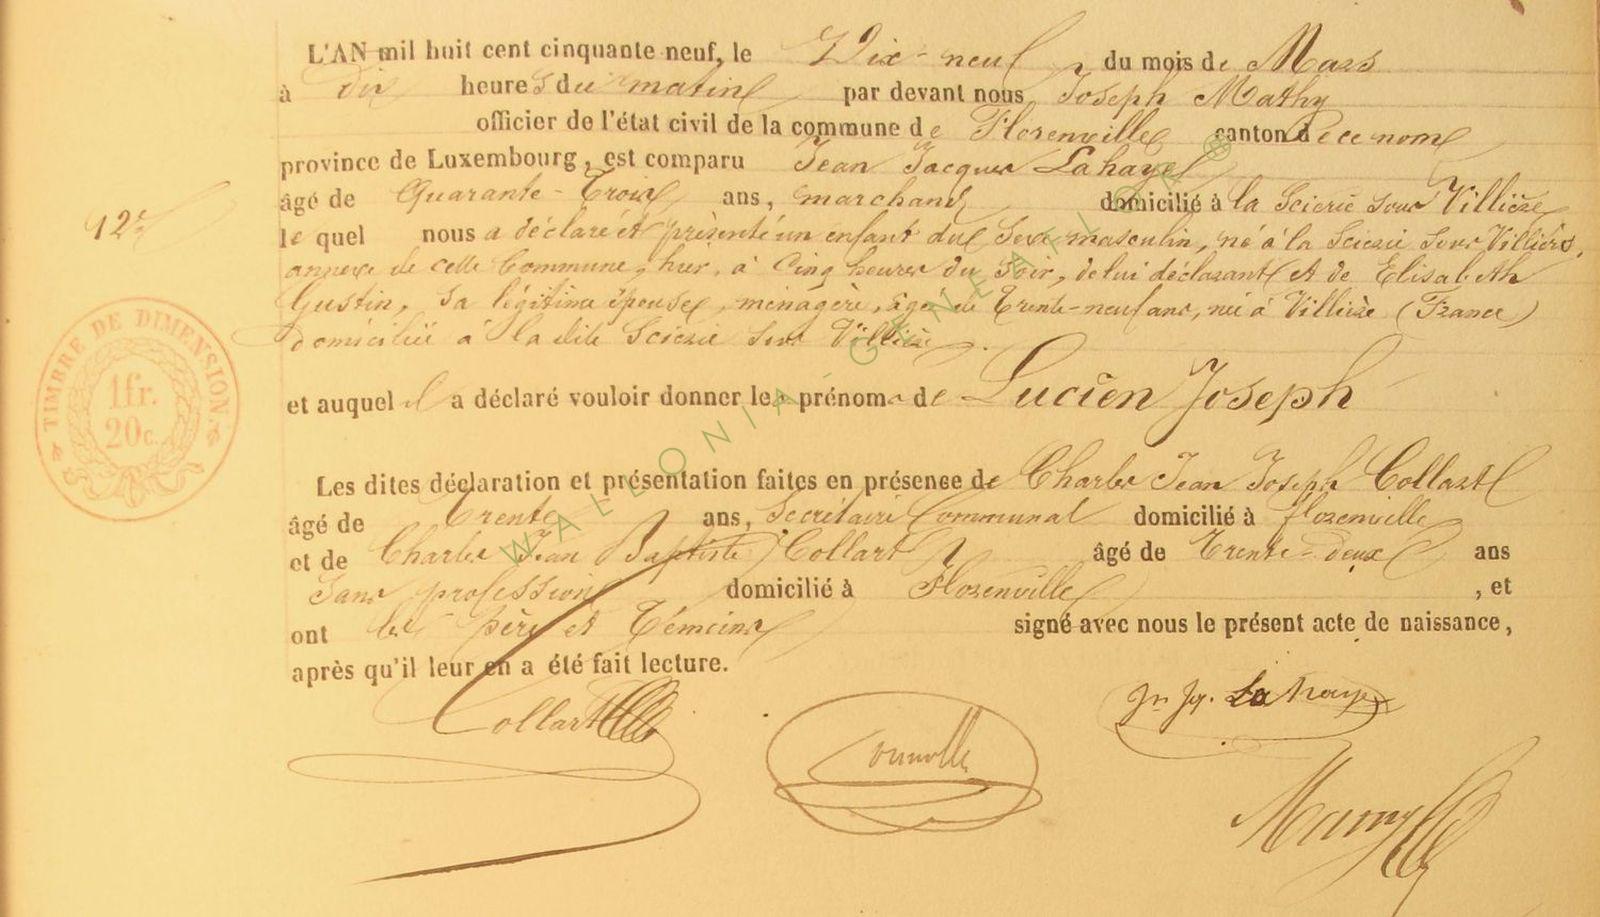 L'AN mil huit cent cinquante neuf, le Dix-neuf, du mois de Mars
à dix heures du matin par devant nous Joseph Mathy
officier de l'état civil de la commune de Florenville canton de ce nom
province de Luxembourg, est comparu Jean Jacques Lahaye
âgé de Quarante-Trois ans, marchand domicilié à la Scierie sous Villière
12
le quel nous a déclaré et présenté un enfant du Sexe masculin, né à la Scierie sous Villière,
annexe de cette Commune, hier, à Cinq heures du Soir, de lui déclarant et de Elisabeth
Gustin, Sa légitime épouse, ménagère, âgée de Trente-neuf ans, née à Villière (France)
domiciliée à la dite Scierie sous Villière.
TIMBRE DE DIMENSION
1 fr.
20 c.
et auquel il a déclaré vouloir donner les prénoms de Lucien Joseph
Les dites déclaration et présentation faites en présence de Charles Jean Joseph Collart
âgé de Trente ans, Secrétaire Communal domicilié à florenville
et de Charles Jean Baptiste Collart âgé de Trente-deux ans
Sans profession domicilié à Florenville, et
ont les père et Témoins signé avec nous le présent acte de naissance,
après qu'il leur en a été fait lecture.
Collart Jn Jq. La haye
WALLONIA-GENEALOR®